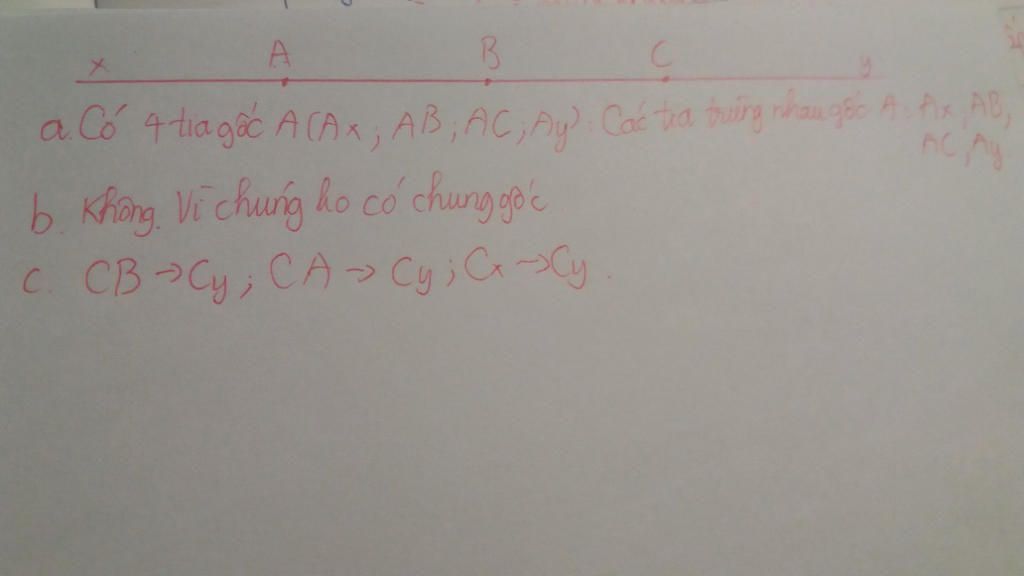 x A B C y
a. Có 4 tia gốc A (Ax; AB; AC; Ay). Các tia trùng nhau gốc A: Ax, AB,
AC, Ay
b. Không. Vì chúng ko có chung gốc
c. CB → Cy; CA → Cy; Cx → Cy.